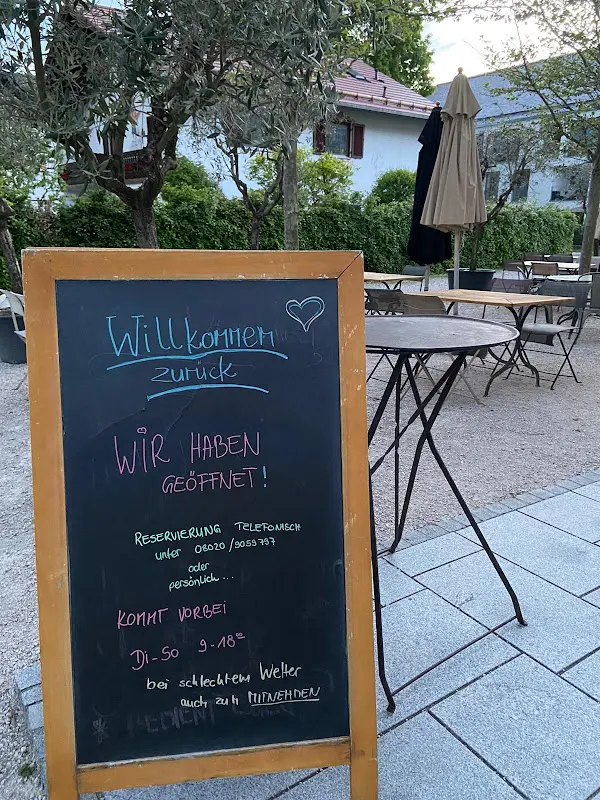 Willkommen
zurück
WIR HABEN
GEÖFFNET!
RESERVIERUNG TELEFONISCH
unter 08020/9059797
oder
persönlich...
KOMMT VORBEI
Di-So 9-18⁰⁰
bei schlechtem Wetter
auch zum MITNEHMEN